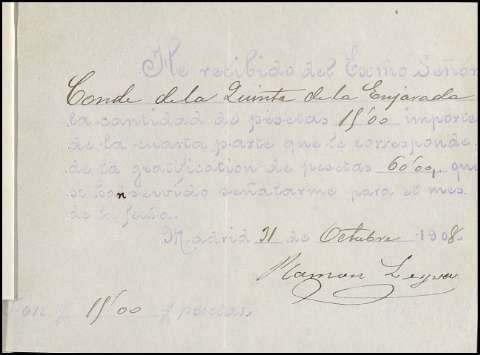 He recibido del Exmo Señor
Conde de la Quinta de la Enjarada
la cantidad de pesetas 15'00 importe
de la cuarta parte que le corresponde
de la gratification de pesetas 60'00, que
se consentido señalarme para el mes
de la fecha.
Madrid 31 de Octubre 1908.
Ramon Leyva
on 15'00 pesetas